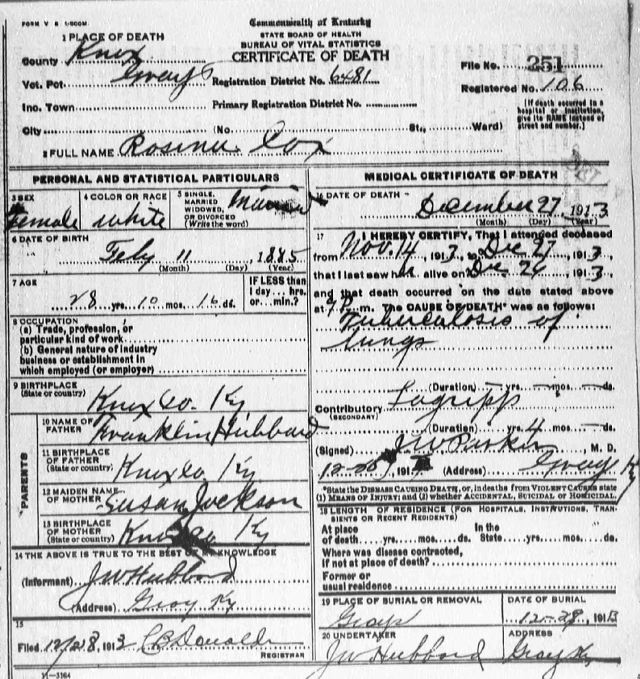 FORM V. S. 1-500M.
Commonwealth of Kentucky
STATE BOARD OF HEALTH
BUREAU OF VITAL STATISTICS
CERTIFICATE OF DEATH
1 PLACE OF DEATH
County Knox
Vot. Pct. Grays Registration District No. 6481
File No. 251
Registered No. 106
Inc. Town Primary Registration District No.
[If death occurred in a hospital or institution, give its NAME instead of street and number.]
City (No. St.; Ward)
2 FULL NAME Rosina Cox
PERSONAL AND STATISTICAL PARTICULARS
3 SEX
Female
4 COLOR OR RACE
white
5 SINGLE, MARRIED WIDOWED, OR DIVORCED (Write the word)
Married
6 DATE OF BIRTH
Feby 11 1885
(Month) (Day) (Year)
7 AGE
28 yrs. 10 mos. 16 ds.
IF LESS than 1 day... hrs. or... min.?
8 OCCUPATION
(a) Trade, profession, or particular kind of work
(b) General nature of industry business or establishment in which employed (or employer)
9 BIRTHPLACE (State or country)
Knox Co. Ky
PARENTS
10 NAME OF FATHER
Franklin Hubbard
11 BIRTHPLACE OF FATHER (State or country)
Knox Co Ky
12 MAIDEN NAME OF MOTHER
Susan Jackson
13 BIRTHPLACE OF MOTHER (State or country)
Knox Co Ky
14 THE ABOVE IS TRUE TO THE BEST OF MY KNOWLEDGE
(Informant) J W Hubbard
(Address) Gray Ky
15
Filed 12/28, 1913
REGISTRAR
11-3184
MEDICAL CERTIFICATE OF DEATH
16 DATE OF DEATH
December 27 1913
(Month) (Day) (Year)
17 I HEREBY CERTIFY, That I attended deceased
from Nov. 14, 1913, to Dec 27, 1913,
that I last saw h alive on Dec 26, 1913,
and that death occurred on the date stated above
at 9 P. m. The CAUSE OF DEATH* was as follows:
Tuberculosis of
lungs
(Duration) yrs. mos. ds.
Contributory Lagripp
(SECONDARY)
(Duration) yrs. 4 mos. ds.
(Signed) J W Parker, M. D.
12-28 191 (Address) Gray Ky
*State the DISEASE CAUSING DEATH, or, in deaths from VIOLENT CAUSES state (1) MEANS OF INJURY; and (2) whether ACCIDENTAL, SUICIDAL or HOMICIDAL.
18 LENGTH OF RESIDENCE (FOR HOSPITALS, INSTITUTIONS, TRANSIENTS OR RECENT RESIDENTS)
At place of death yrs. mos. ds. In the State yrs. mos. ds.
Where was disease contracted, if not at place of death?
Former or usual residence
19 PLACE OF BURIAL OR REMOVAL
Grays
DATE OF BURIAL
12-28, 1913
20 UNDERTAKER
J W Hubbard
ADDRESS
Gray Ky